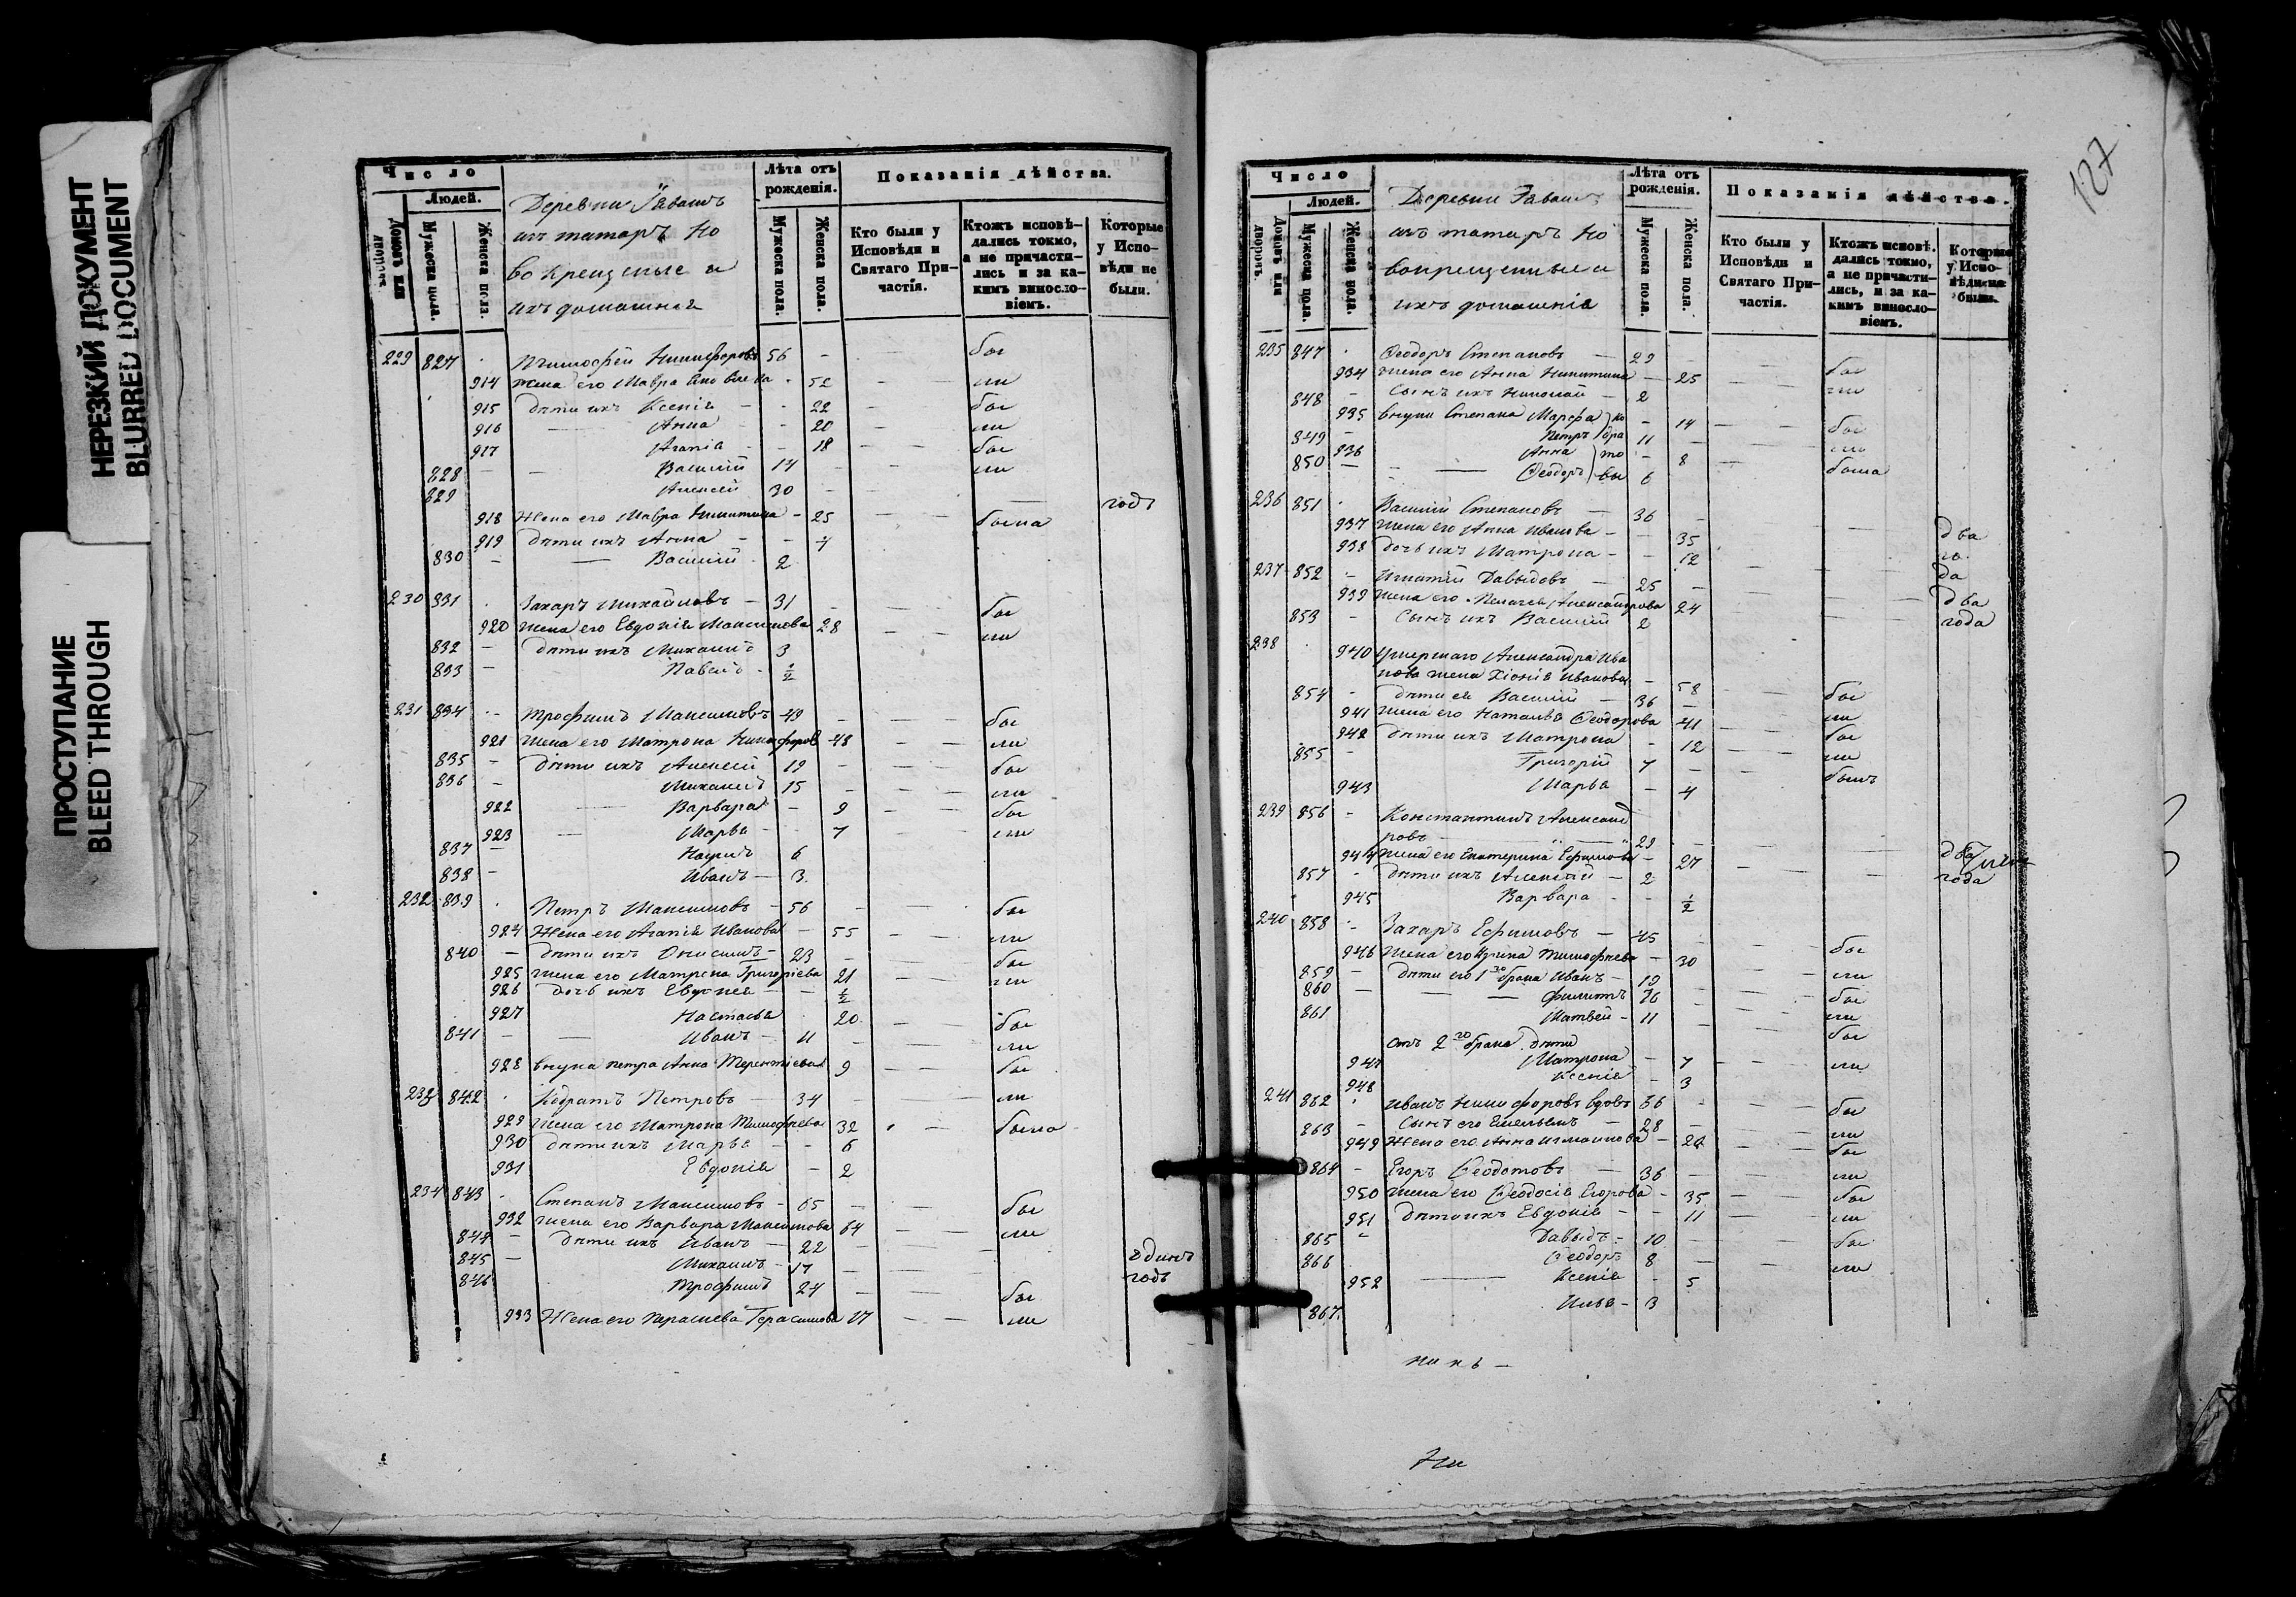 НЕРЕЗКИЙ ДОКУМЕНТ
BLURRED DOCUMENT
ПРОСТУПАНИЕ
BLEED THROUGH
Число
Людей.
Домовъ или дворовъ.
Мужеска пола.
Женска пола.
Деревни
изъ татаръ Но
вокрещеные и
ихъ домашнія
Лѣта отъ рожденія.
Мужеска пола.
Женска пола.
Показанія дѣйства.
Кто были у Исповѣди и Святаго При-частія.
Ктожъ исповѣ-дались токмо, а не причасти-лись и за ка-кимъ винословіемъ.
Которые у Испо-вѣди не были.
229 827 Тимофей Никифоровъ 56 — бы
914 жена его Мавра 52 — ли
915 дѣти ихъ Ксенія 22 — бы
916 — Анна 20 — ли
917 Агапія 18 — бы
828 — Василій 14 — ли
829 Алексей 30 — годъ
918 Жена его Мавра Никитина 25 — была
919 дѣти ихъ Анна 4
830 — Василий 2
230 831 Захаръ Михайловъ 31 — бы
920 жена его Евдокія Максимова 28 — ли
832 дѣти ихъ Михаилъ 3
833 Павелъ ½
231 834 Трофимъ Максимовъ 49 — бы
921 жена его Матрона Никифоров 48 — ли
835 дѣти ихъ Алексей 19 — бы
836 Михаилъ 15 — ли
922 — Варвара 9 — бы
923 — Марья 7 — ли
837 6
838 Иванъ 3
232 839 Петръ Максимовъ 56 — бы
924 Жена его Агапія Иванова 55 — ли
840 дѣти ихъ Онисимъ 23 — бы
925 жена его Матрена Григоріева 21 — ли
926 дочь ихъ Евдокея ½
927 Настасья 20 — бы
841 — Иванъ 11 — ли
928 внука Петра Анна Терентіева 9 — бы
233 842 Кодратъ Петровъ 34 — ли
929 жена его Матрона Тимофеева 32 — была
930 дѣти ихъ Марья 6
931 Евдокія 2
234 843 Степанъ Максимовъ 65 — бы
932 жена его Варвара Максимова 64 — ли
844 дѣти ихъ Иванъ 22 —
845 Михаилъ 17 — одинъ
846 Трофимъ 24 — бы годъ
933 Жена его Параскева Герасимова 17 — ли
127
Число
Людей.
Домовъ или дворовъ.
Мужеска пола.
Женска пола.
Деревни
изъ татаръ Но
вокрещеные и
ихъ домашніе
Лѣта отъ рожденія.
Мужеска пола.
Женска пола.
Показанія дѣйства.
Кто были у Исповѣди и Святаго При-частія.
Ктожъ исповѣ-дались токмо, а не причасти-лись, и за ка-кимъ винословіемъ.
Которые у Испо-вѣди не были.
235 847 Ѳеодоръ Степановъ — 29 —
934 жена его Анна Никитина 25 — бы
848 Сынъ ихъ Николай 2 ли
935 внуки Степана Марфа 14 — бы
849 Петръ 11 — ли
936 Анна 8 — была
850 — Ѳеодоръ 6
236 851 Василій Степановъ 36 —
937 жена его Анна Иванова 35 — два
938 дочь ихъ Матрона 12 го
237 852 Игнатій Давыдовъ 25 — да
939 жена его Пелагея Александрова 24 — два
853 Сынъ ихъ Василий 2 года
238
940 Умершаго Александра Ива
нова жена Хіонія Иванова 58 — бы
854 дѣти ея Василій 36 — ли
941 жена его Наталья Ѳеодорова 41 — бы
942 дѣти ихъ Матрона 12 — ли
855 Григорій 7 — былъ
943 Марья 4
239 856 Константинъ Александ
ровъ 29 —
944 жена его Екатерина Ефимова 27 — два
857 дѣти ихъ Алексѣй 2 года
945 Варвара ½
240 858 Захаръ Ефимовъ 45 — бы
946 жена его Ирина Тимофеева 30 — ли
859 дѣти его 1го брака Иванъ 19 — бы
860 — Филипъ 16 — ли
861 Матвей 11 — бы
отъ 2го брака дѣти
947 Матрона 7 — ли
948 Ксенія 3
241 862 Иванъ Никифоровъ вдовъ 56 — бы
863 Сынъ его Емельянъ 28 — ли
949 Жена его Анна 24 — бы
864 Егоръ Ѳеодотовъ 36 — ли
950 жена его Ѳеодосія Егорова 35 — бы
951 дѣти ихъ Евдокія 11 — ли
865 Давыдъ 10 — бы
866 Ѳеодоръ 8 — ли
952 — Ксенія 5
867. Илья 3